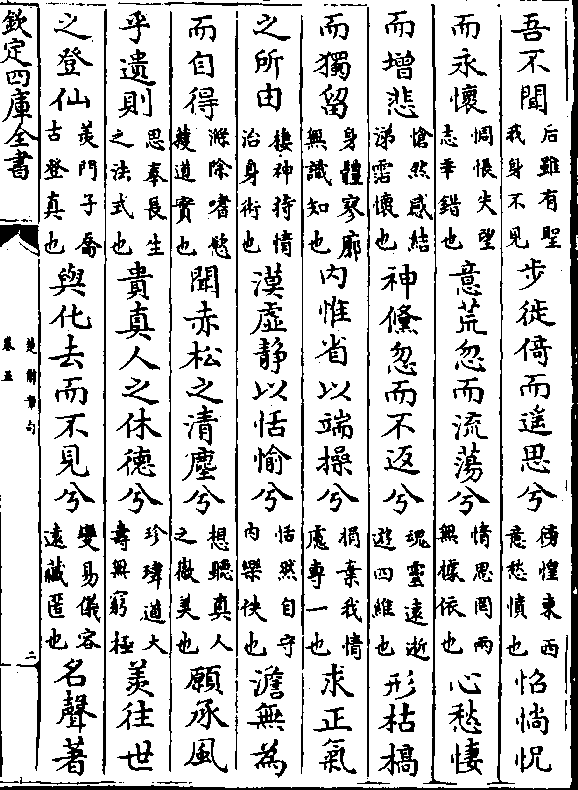 吾不聞后雖有聖我身不見步徙倚而遥思兮徬徨東西意愁憤也怊惝怳
而永懷惆悵失望志乖錯也意荒忽而流蕩兮情思罔兩無據依也心愁悽
而增悲愴然感結涕霑懷也神儵忽而不返兮魂靈遠逝遊四維也形枯槁
而獨留身體寥廓無識知也内惟省以端操兮捐棄我情慮專一也求正氣
之所由棲神待情治身術也漠虛静以恬愉兮恬然自守内樂佚也澹無為
而自得滌除嗜慾獲道實也聞赤松之清塵兮想聽真人之徽美也願承風
乎遺則思奉長生之法式也貴真人之休德兮珍瑋道大壽無窮極羨往世
之登仙羨門子喬古登真也與化去而不見兮變易儀容遠藏匿也名聲著
欽定四庫全書
楚辭章句
卷五
二